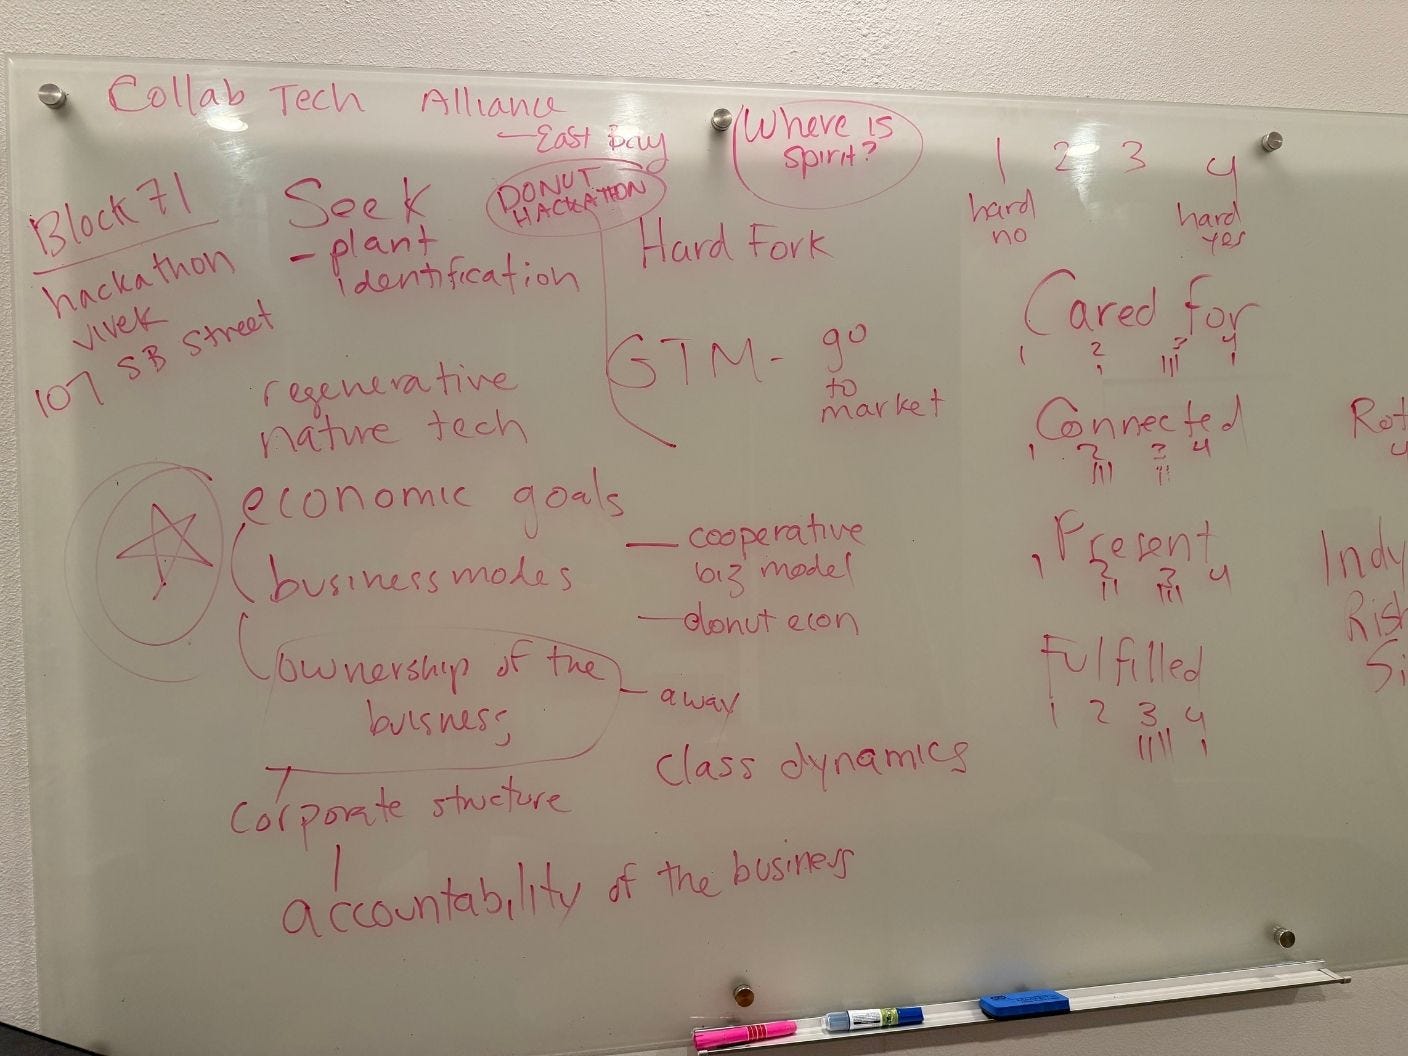 Collab Tech Alliance
— East Bay
Where is
spirit?
Block 71
hackathon
vivek
107 SB Street
Seek
- plant
identification
DONUT
HACKATHON
Hard Fork
GTM - go
to
market
regenerative
nature tech
economic goals
business modes
— cooperative
biz model
— donut econ
ownership of the
buisness
— away
class dynamics
corporate structure
accountability of the business
1 2 3 4
hard
no
hard
yes
Cared for
1 2 3 4
Connected
1 2 3 4
Present
1 2 3 4
Fulfilled
1 2 3 4
Rot
Indy
Rish
Si